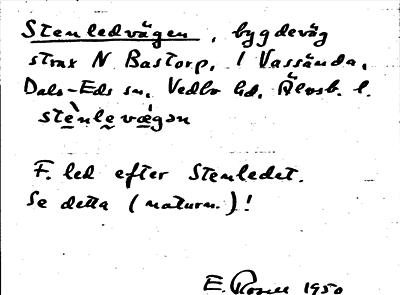 Stenledvägen, bygdeväg
strax N Bastorp, i Vassända,
Dals-Eds sn, Vedbo hd, Älvsb. l.
stènlevǽgən
F. led efter Stenledet.
Se detta (naturn.)!
E. Rosell 1950